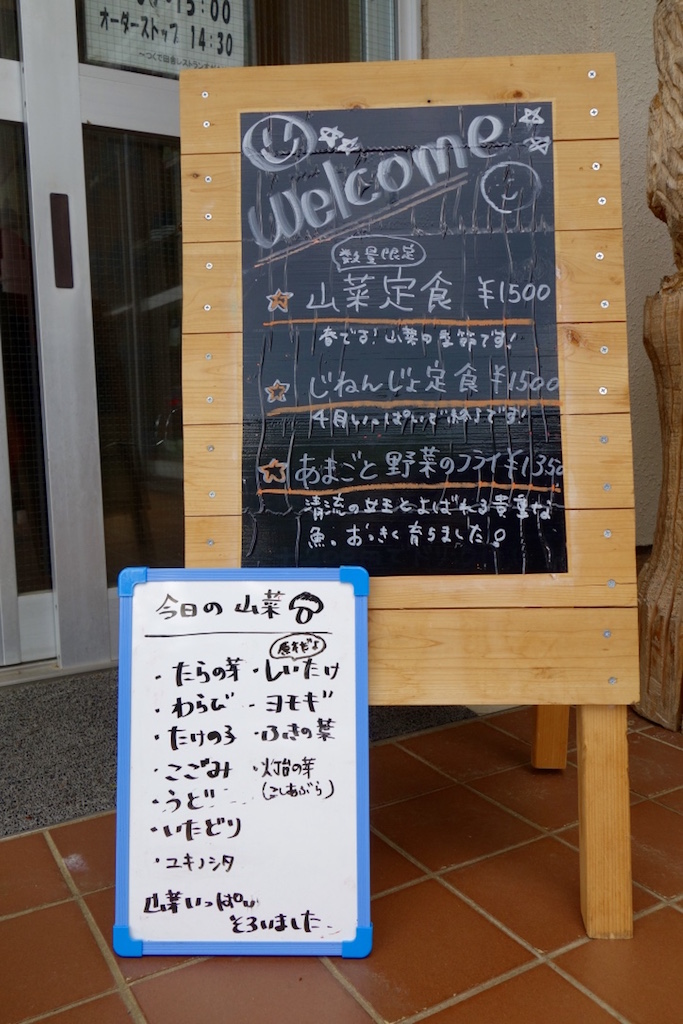 15:00
オーダーストップ 14:30
〜つくで田舎レストラン
welcome
数量限定
山菜定食 ¥1500
春です!山菜の季節です!
じねんじょ定食 ¥1500
4月いっぱいで終了です!
あまごと野菜のフライ ¥1350
清流の女王とよばれる貴重な
魚。おっきく育ちました。
今日の山菜
原木だよ
・たらの芽 ・しいたけ
・わらび ・ヨモギ
・たけのこ ・ふきの葉
・こごみ ・灯台の芽
・うど (こしあぶら)
・いたどり
・ユキノシタ
山菜いっぱい
そろいました